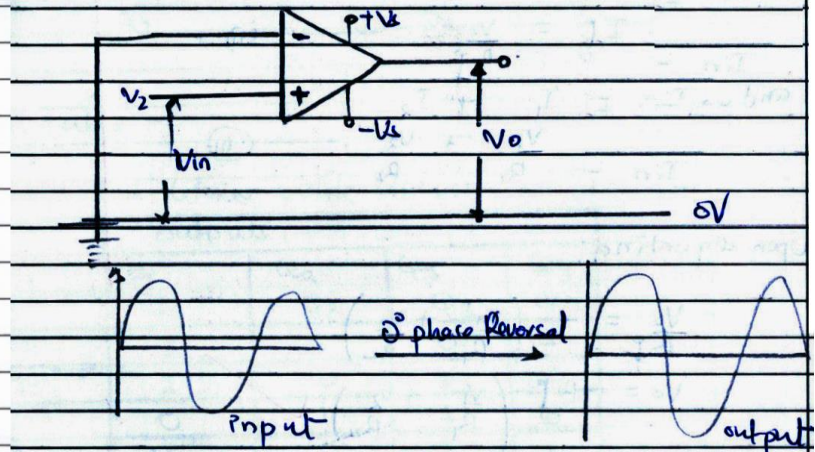 +Vs
-
V2
+
-Vs
Vin
Vo
0V
0° phase Reversal
input
output